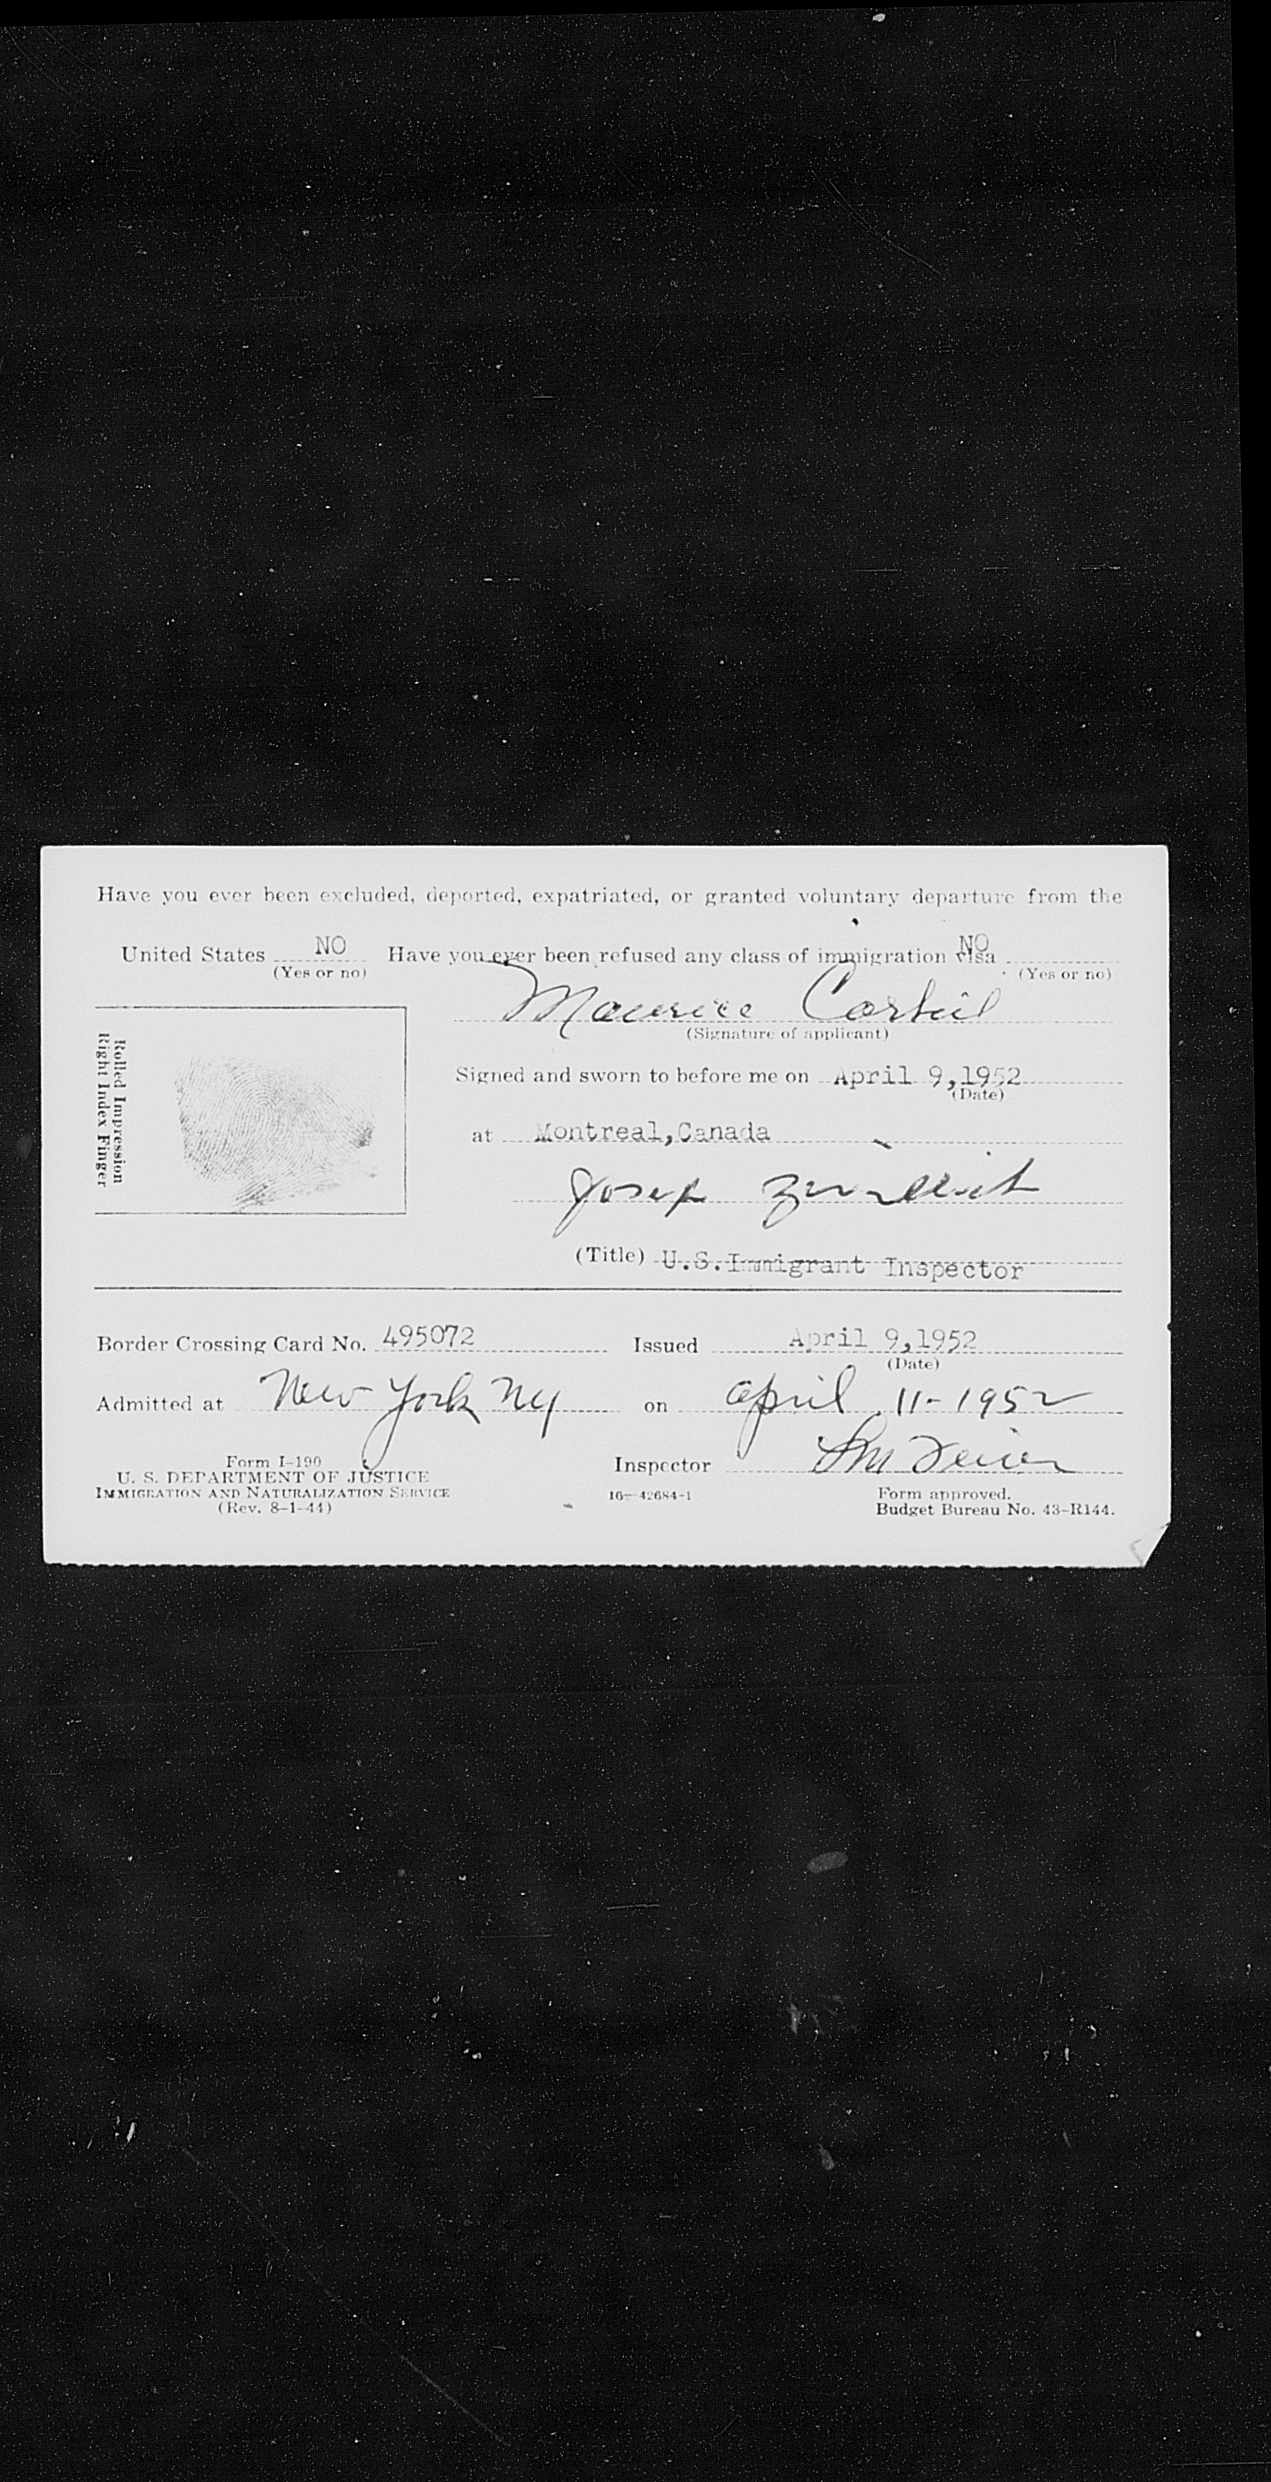 Have you ever been excluded, deported, expatriated, or granted voluntary departure from the
United States NO Have you ever been refused any class of immigration visa NO
(Yes or no) (Yes or no)
Maurice Corbeil
(Signature of applicant)
Rolled Impression
Right Index Finger
Signed and sworn to before me on April 9,1952
(Date)
at Montreal,Canada
Josep
(Title) U.S.Immigrant Inspector
Border Crossing Card No. 495072 Issued April 9,1952
(Date)
Admitted at New York NY on April 11-1952
Inspector
Form I-190
U. S. DEPARTMENT OF JUSTICE
IMMIGRATION AND NATURALIZATION SERVICE
(Rev. 8-1-44)
16—42684-1
Form approved.
Budget Bureau No. 43-R144.